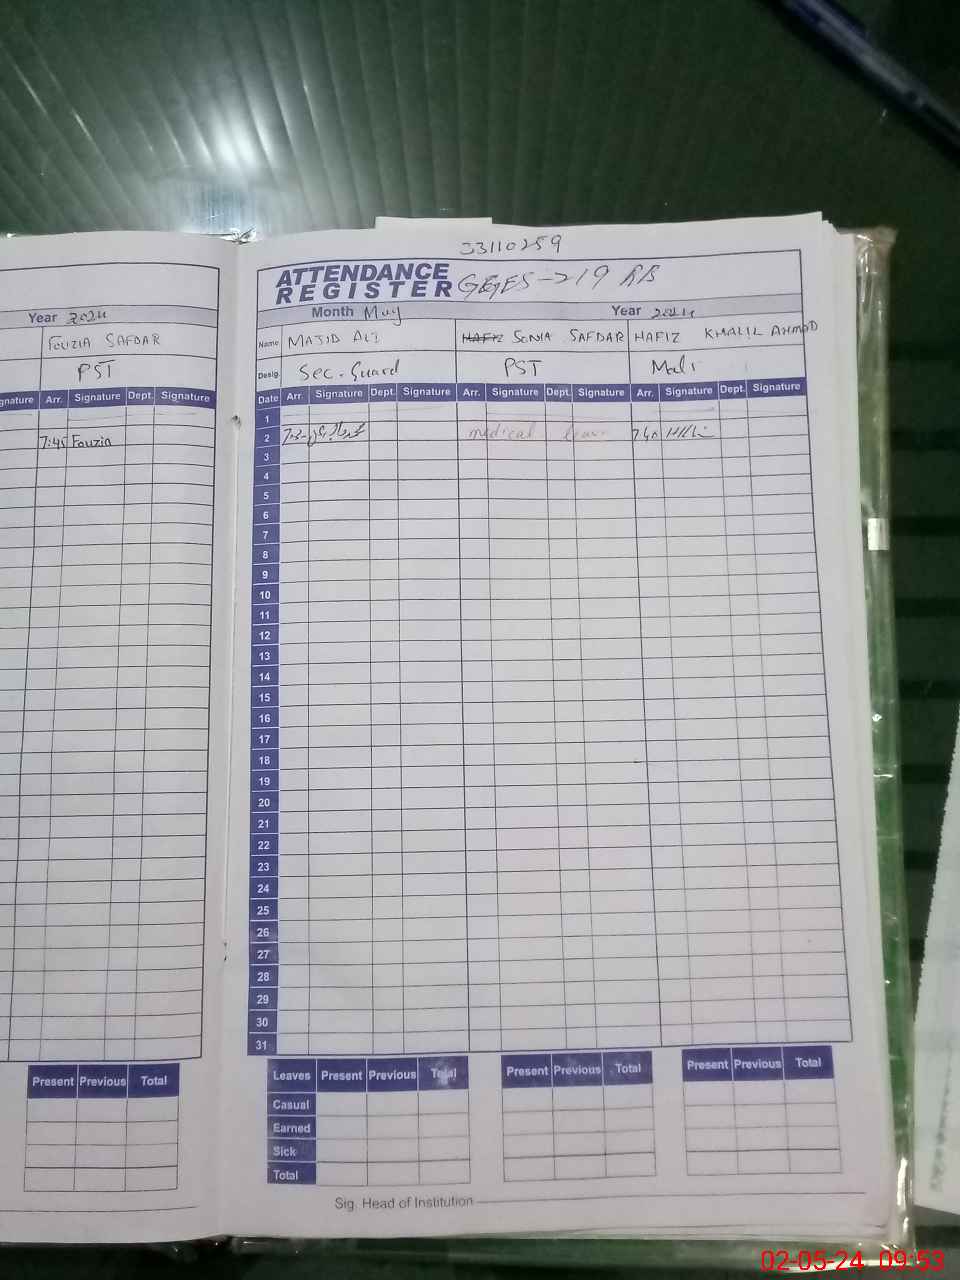 Year 2024
FOUZIA SAFDAR
PST
gnature Arr. Signature Dept. Signature
7:45 Fouzia
Present Previous Total
33110259
ATTENDANCE
REGISTER GGES-219 RB
Month May Year 2024
Name MAJID ALI HAFIZ SONIA SAFDAR HAFIZ KHALIL AHMAD
Desig. Sec. Guard PST Mali
Date Arr. Signature Dept. Signature Arr. Signature Dept. Signature Arr. Signature Dept. Signature
1
2 medical leave 7 40
3
4
5
6
7
8
9
10
11
12
13
14
15
16
17
18
19
20
21
22
23
24
25
26
27
28
29
30
31
Leaves Present Previous Total Present Previous Total Present Previous Total
Casual
Earned
Sick
Total
Sig. Head of Institution
02-05-24 09:53